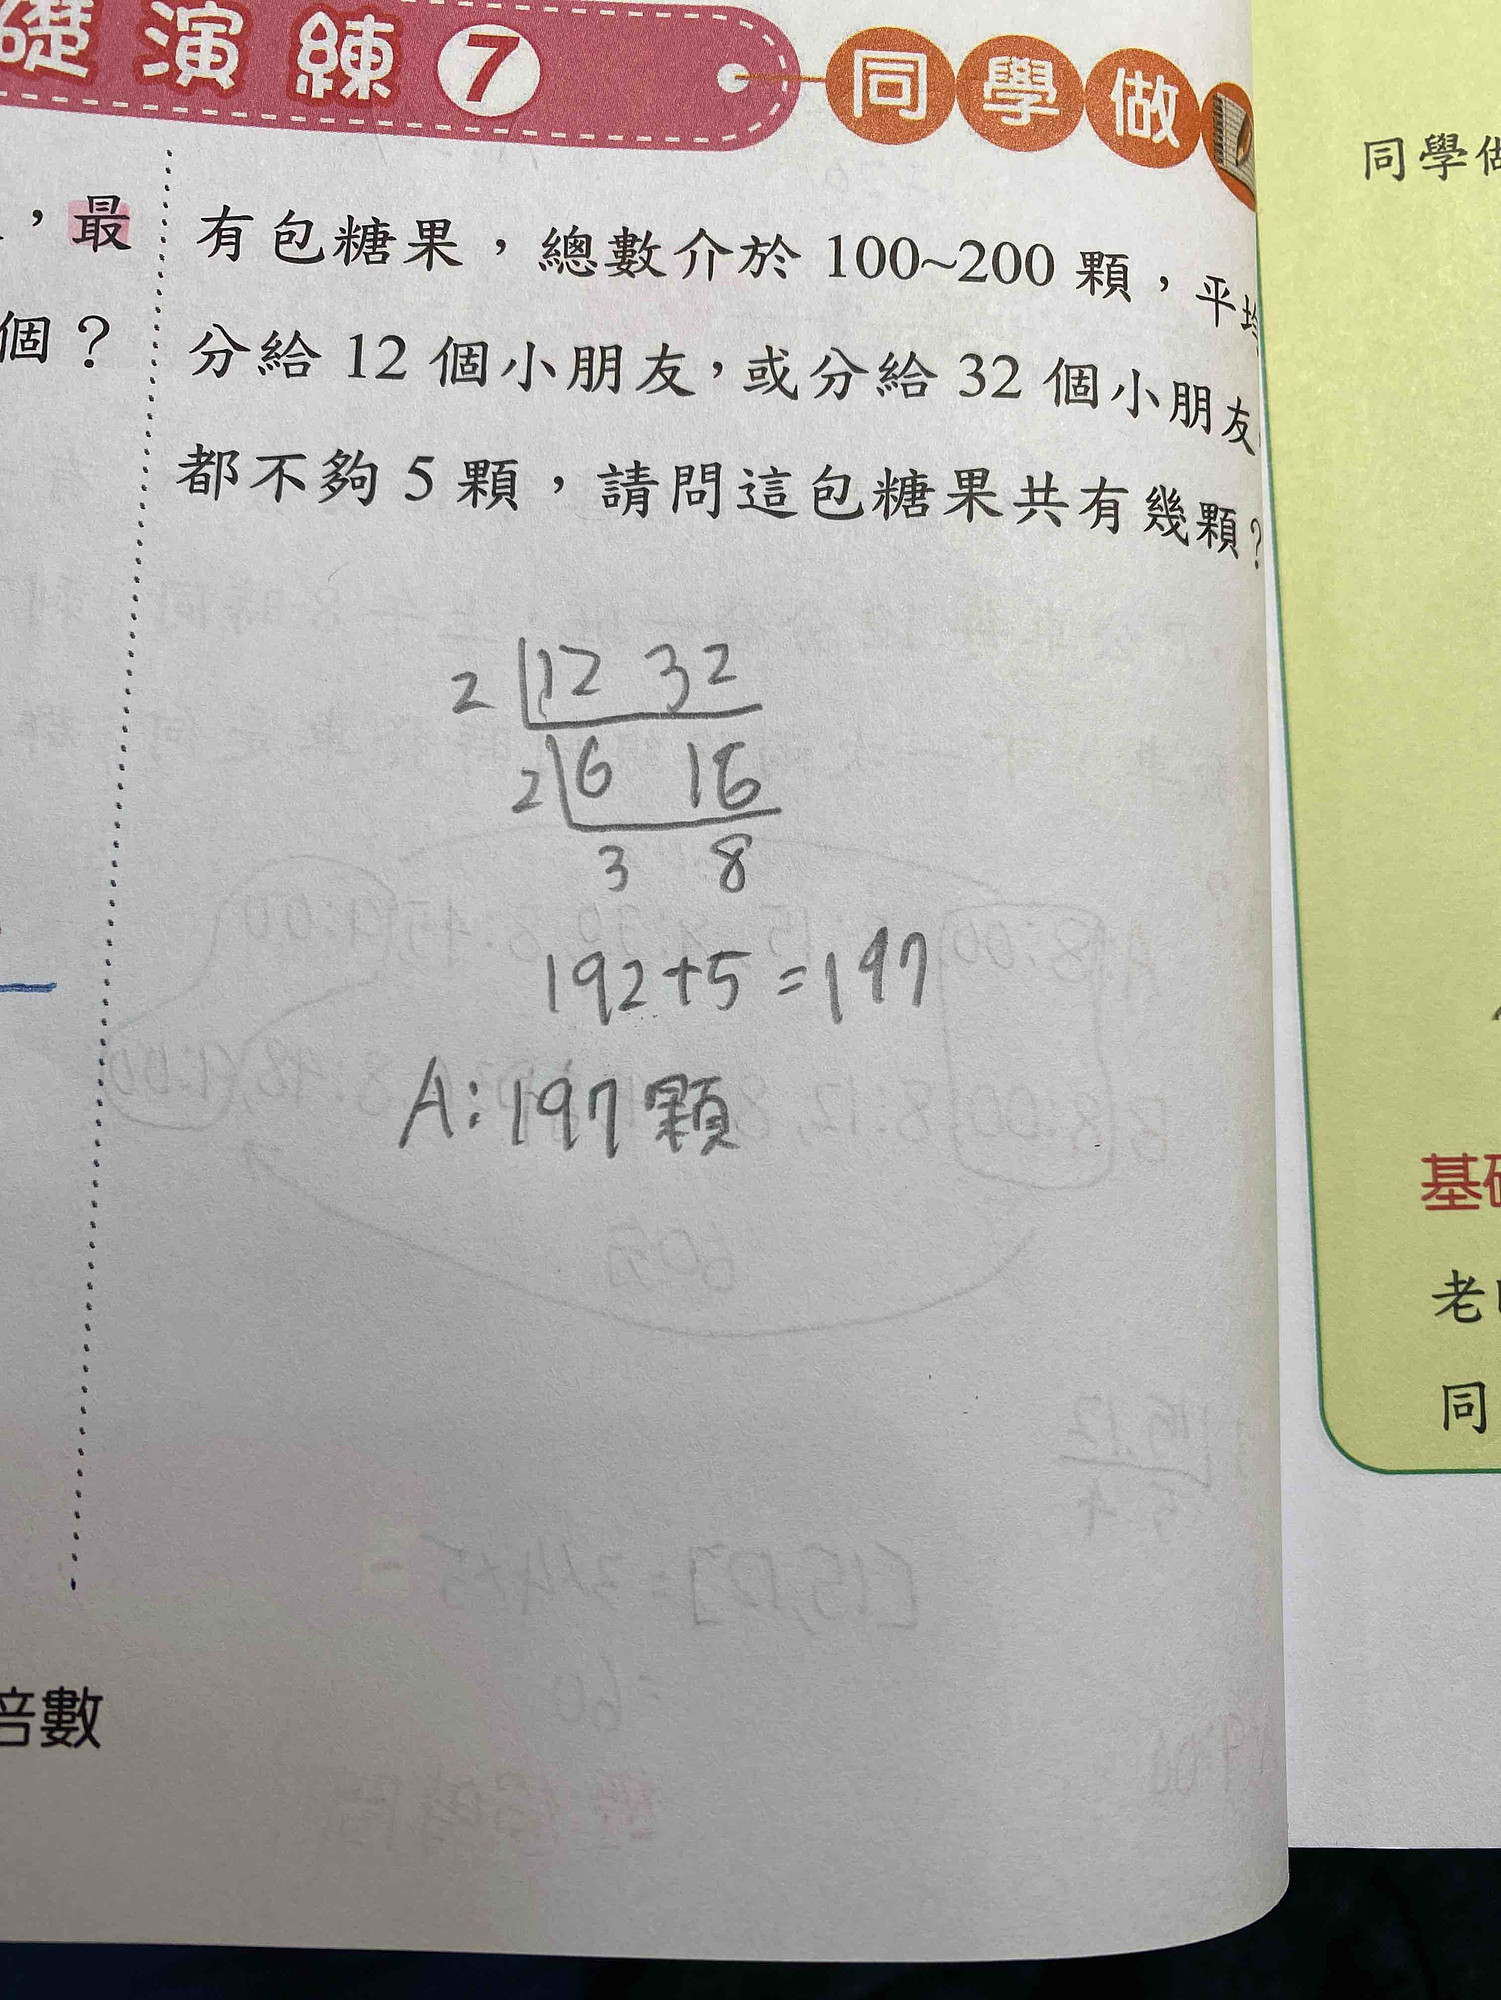 礎演練7 同學做
，最
個？
有包糖果，總數介於 100~200 顆，平均
分給 12 個小朋友，或分給 32 個小朋友，
都不夠 5 顆，請問這包糖果共有幾顆？
2 12 32
2 6 16
3 8
192+5=197
A:197顆
倍數
同學做
基礎
老
同